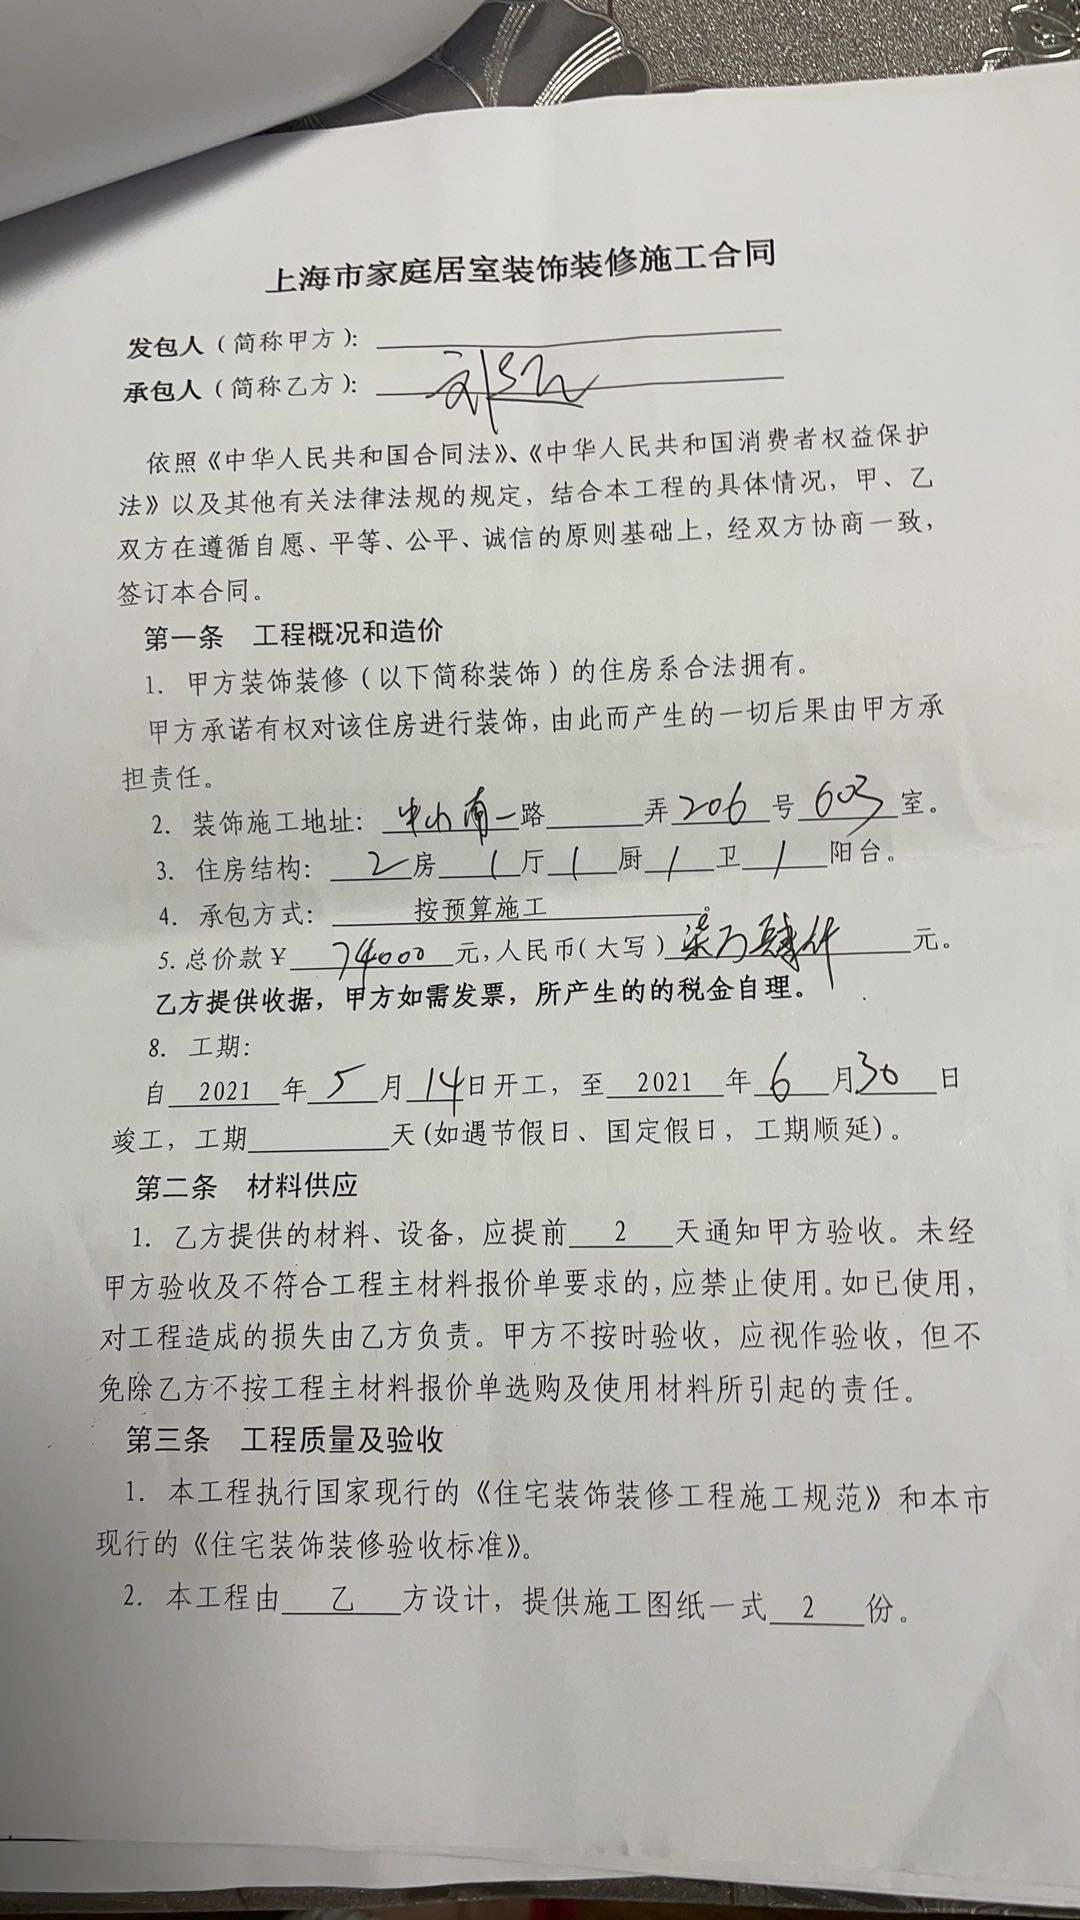 上海市家庭居室装饰装修施工合同
发包人（简称甲方）：
承包人（简称乙方）：
依照《中华人民共和国合同法》、《中华人民共和国消费者权益保护
法》以及其他有关法律法规的规定，结合本工程的具体情况，甲、乙
双方在遵循自愿、平等、公平、诚信的原则基础上，经双方协商一致，
签订本合同。
第一条 工程概况和造价
1. 甲方装饰装修（以下简称装饰）的住房系合法拥有。
甲方承诺有权对该住房进行装饰，由此而产生的一切后果由甲方承
担责任。
2. 装饰施工地址：中山南一路 弄 206 号 603 室。
3. 住房结构： 2 房 1 厅 1 厨 1 卫 1 阳台。
4. 承包方式： 按预算施工 。
5. 总价款￥ 74000 元，人民币（大写）柒万肆仟 元。
乙方提供收据，甲方如需发票，所产生的的税金自理。
8. 工期：
自 2021 年 5 月 14 日开工，至 2021 年 6 月 30 日
竣工，工期 天(如遇节假日、国定假日，工期顺延)。
第二条 材料供应
1. 乙方提供的材料、设备，应提前 2 天通知甲方验收。未经
甲方验收及不符合工程主材料报价单要求的，应禁止使用。如已使用，
对工程造成的损失由乙方负责。甲方不按时验收，应视作验收，但不
免除乙方不按工程主材料报价单选购及使用材料所引起的责任。
第三条 工程质量及验收
1. 本工程执行国家现行的《住宅装饰装修工程施工规范》和本市
现行的《住宅装饰装修验收标准》。
2. 本工程由 乙 方设计，提供施工图纸一式 2 份。